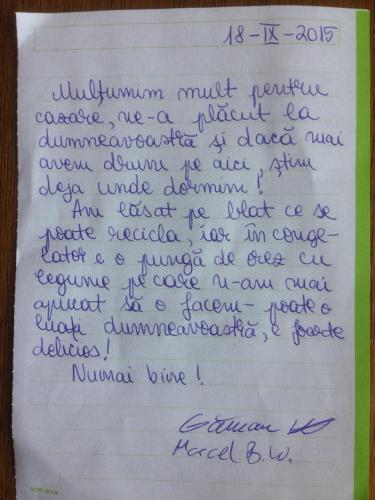 18-IX-2015
Mulțumim mult pentru
cazare, ne-a plăcut la
dumneavoastră și dacă mai
avem drum pe aici, știm
deja unde dormim!
Am lăsat pe blat ce se
poate recicla, iar în conge-
lator e o pungă de orez cu
legume pe care n-am mai
apucat să o facem - poate o
luați dumneavoastră, e foarte
delicios!
Numai bine!
Marcel B.W.